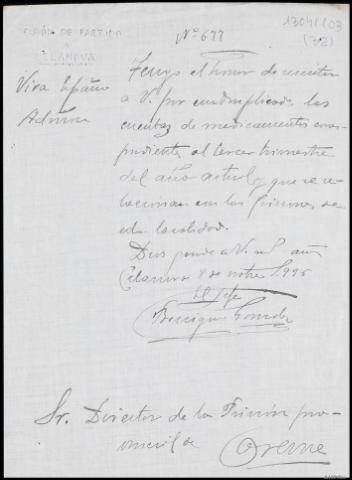 13041 (03
(32)
PRISIÓN DE PARTIDO
CELANOVA
Nº 677
Viva España
Admon
Tengo el honor de remitir
a V. por cuadruplicado, las
cuentas de medicamentos corres
pondientes al tercer trimestre
del año actual, que se re
lacionan con los Prisiones de
esta localidad.
Dios guarde a V. mil años
Celanova 8 de octubre
El Jefe
Benigno
Sr. Director de la Prisión pro
vincial de
Orense